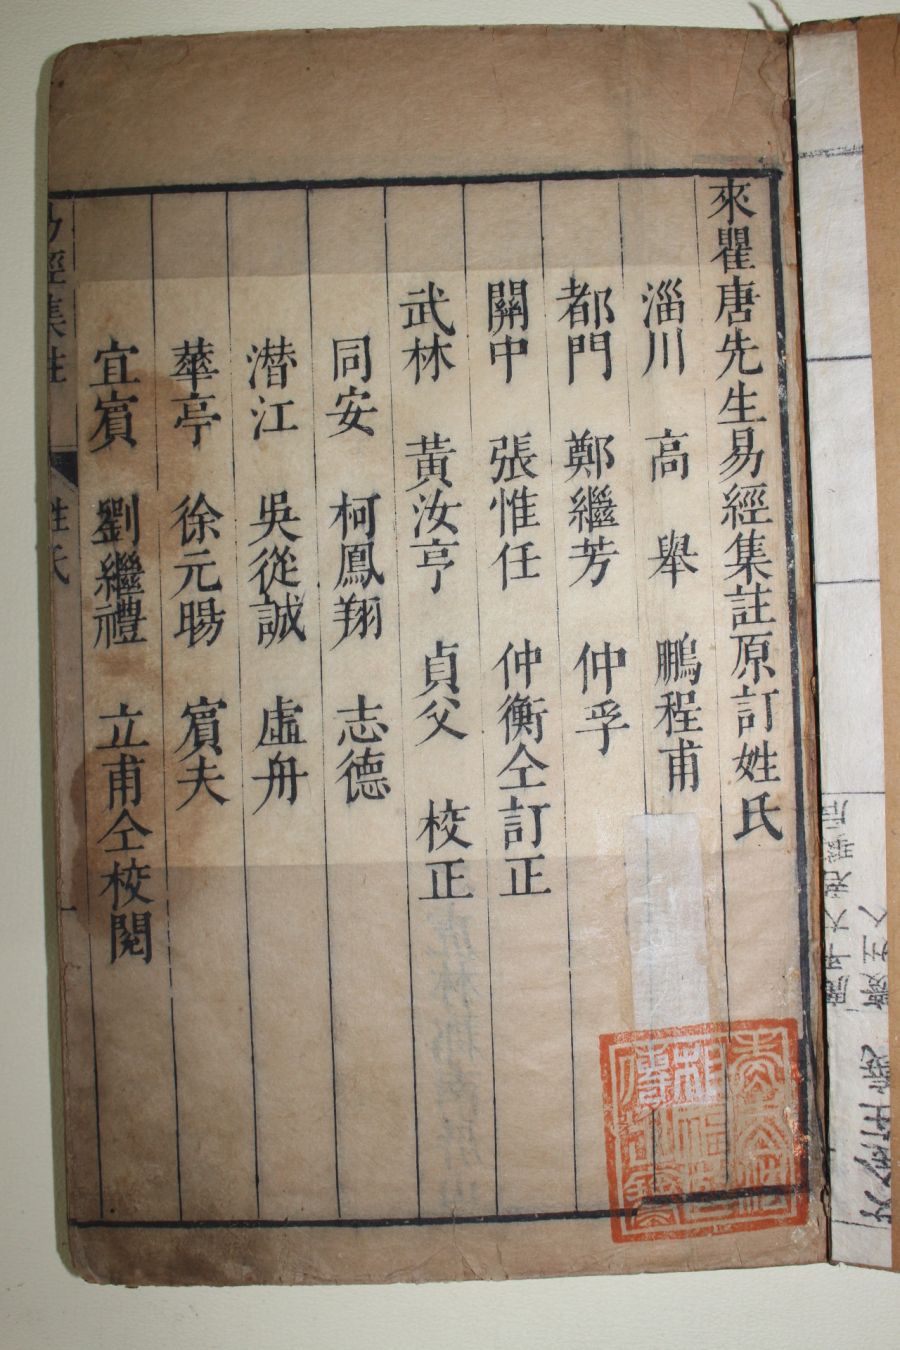 來瞿唐先生易經集註原訂姓氏
淄川 高 舉 鵬程甫
都門 鄭繼芳 仲孚
關中 張惟任 仲衡仝訂正
武林 黃汝亨 貞父 校正
同安 柯鳳翔 志德
潛江 吳從誠 虛舟
華亭 徐元暘 賓夫
宜賓 劉繼禮 立甫仝校閱
易經集註 姓氏 一